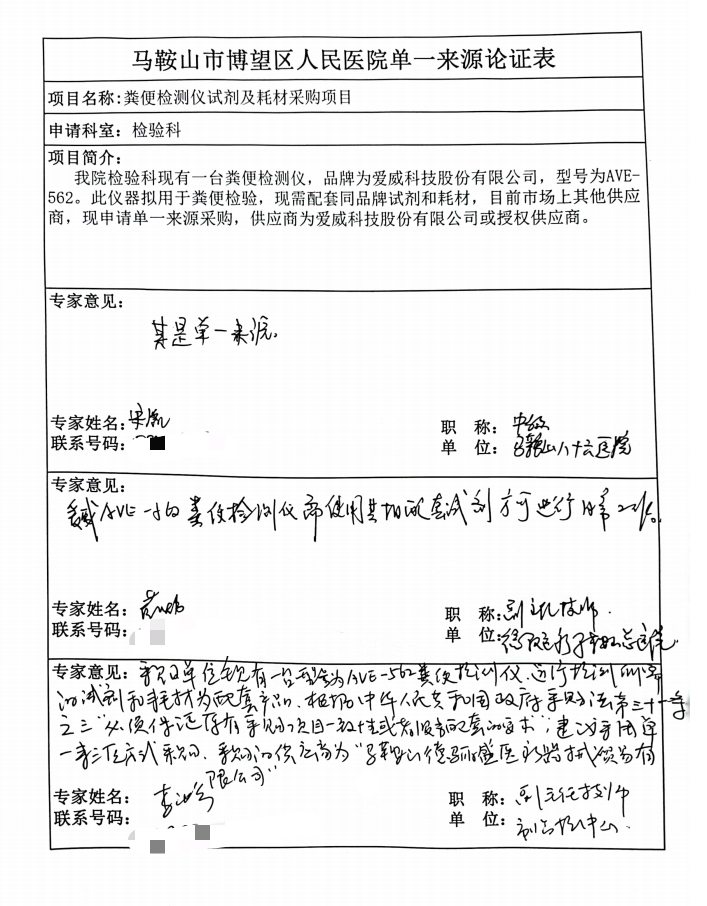 马鞍山市博望区人民医院单一来源论证表
项目名称:粪便检测仪试剂及耗材采购项目
申请科室：检验科
项目简介：
我院检验科现有一台粪便检测仪，品牌为爱威科技股份有限公司，型号为AVE-
562。此仪器拟用于粪便检验，现需配套同品牌试剂和耗材，目前市场上其他供应
商，现申请单一来源采购，供应商为爱威科技股份有限公司或授权供应商。
专家意见：
其是单一来源。
专家姓名：
职 称：中级
联系号码：
单 位：马鞍山八十六医院
专家意见：
AVE-562粪便检测仪需使用其相配套试剂方可进行日常工作。
专家姓名：
职 称：副主任技师
联系号码：
单 位：
专家意见：采购单位现有一台型号为AVE-562粪便检测仪，运行检测所需
的试剂和耗材为配套产品，根据中华人民共和国政府采购法第三十一条
之三"必须保证原有采购项目一致性或者服务配套的要求"，建议采用单
一来源方式采购，采购的供应商为"马鞍山德驭盛医疗器械贸易有
限公司"
专家姓名：
职 称：副主任技师
联系号码：
单 位：